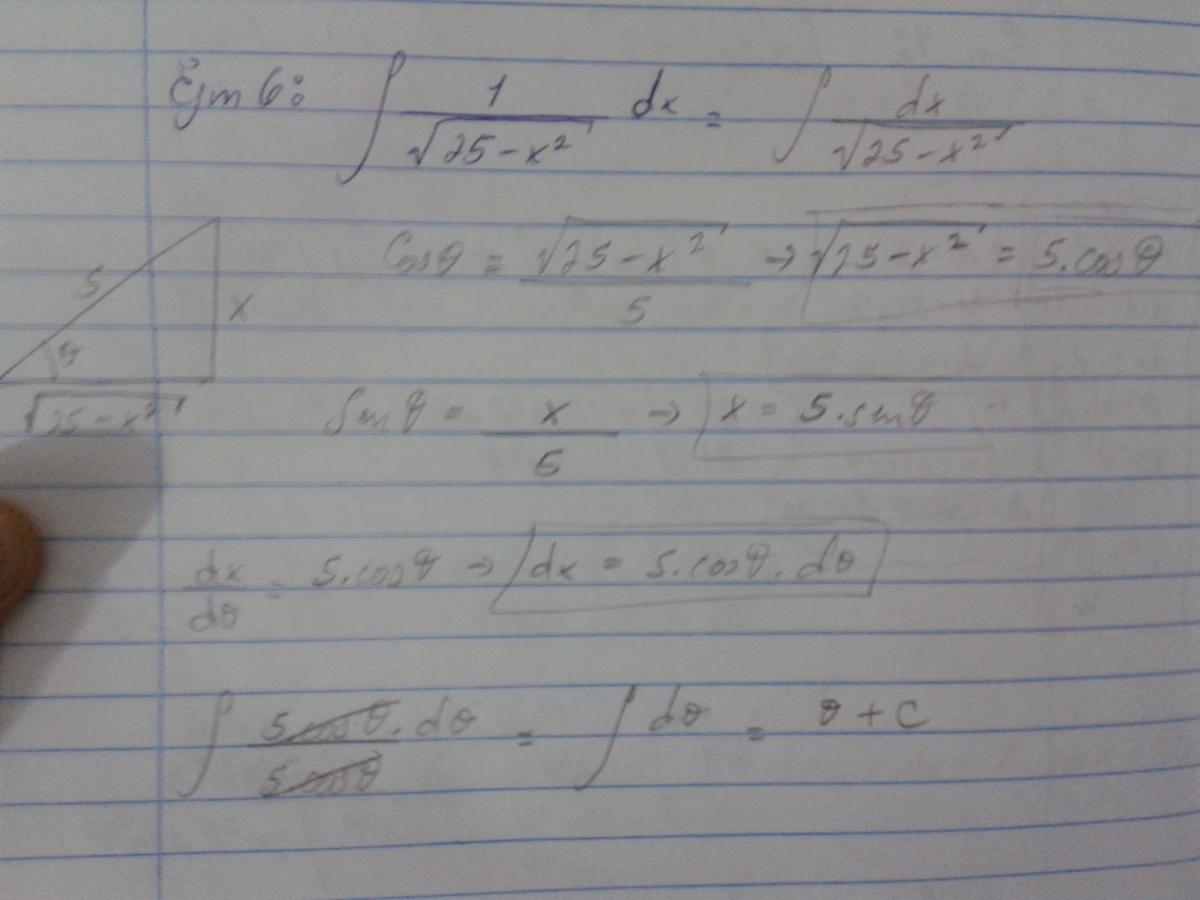 Ejm 6: ∫ 1/√(25-x²) dx = ∫ dx/√(25-x²)
5
x
θ
√(25-x²)
Cosθ = √(25-x²)/5 → √(25-x²) = 5.cosθ
Senθ = x/5 → x = 5.senθ
dx/dθ = 5.cosθ → dx = 5.cosθ.dθ
∫ 5cosθ.dθ/5cosθ = ∫ dθ = θ + C